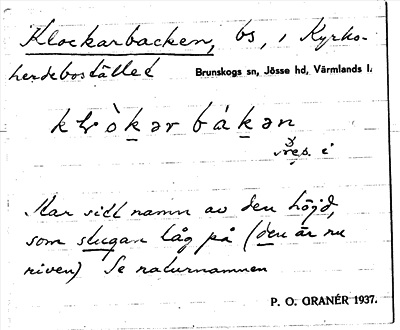 Klockarbacken, bs, i Kyrko-
herdebostället Brunskogs sn, Jösse hd, Värmlands l.
klòkər bákən
i
Har sitt namn av den höjd,
som stugan låg på (den är nu
riven) Se naturnamnen
P. O. GRANÉR 1937.